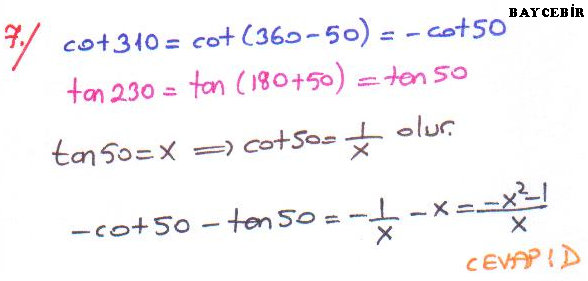 BAYCEBİR
7./ cot310 = cot(360-50) = -cot50
tan230 = tan(180+50) = tan50
tan50=x ⟹ cot50= 1/x olur.
-cot50 - tan50 = -1/x - x = (-x²-1)/x
CEVAP: D